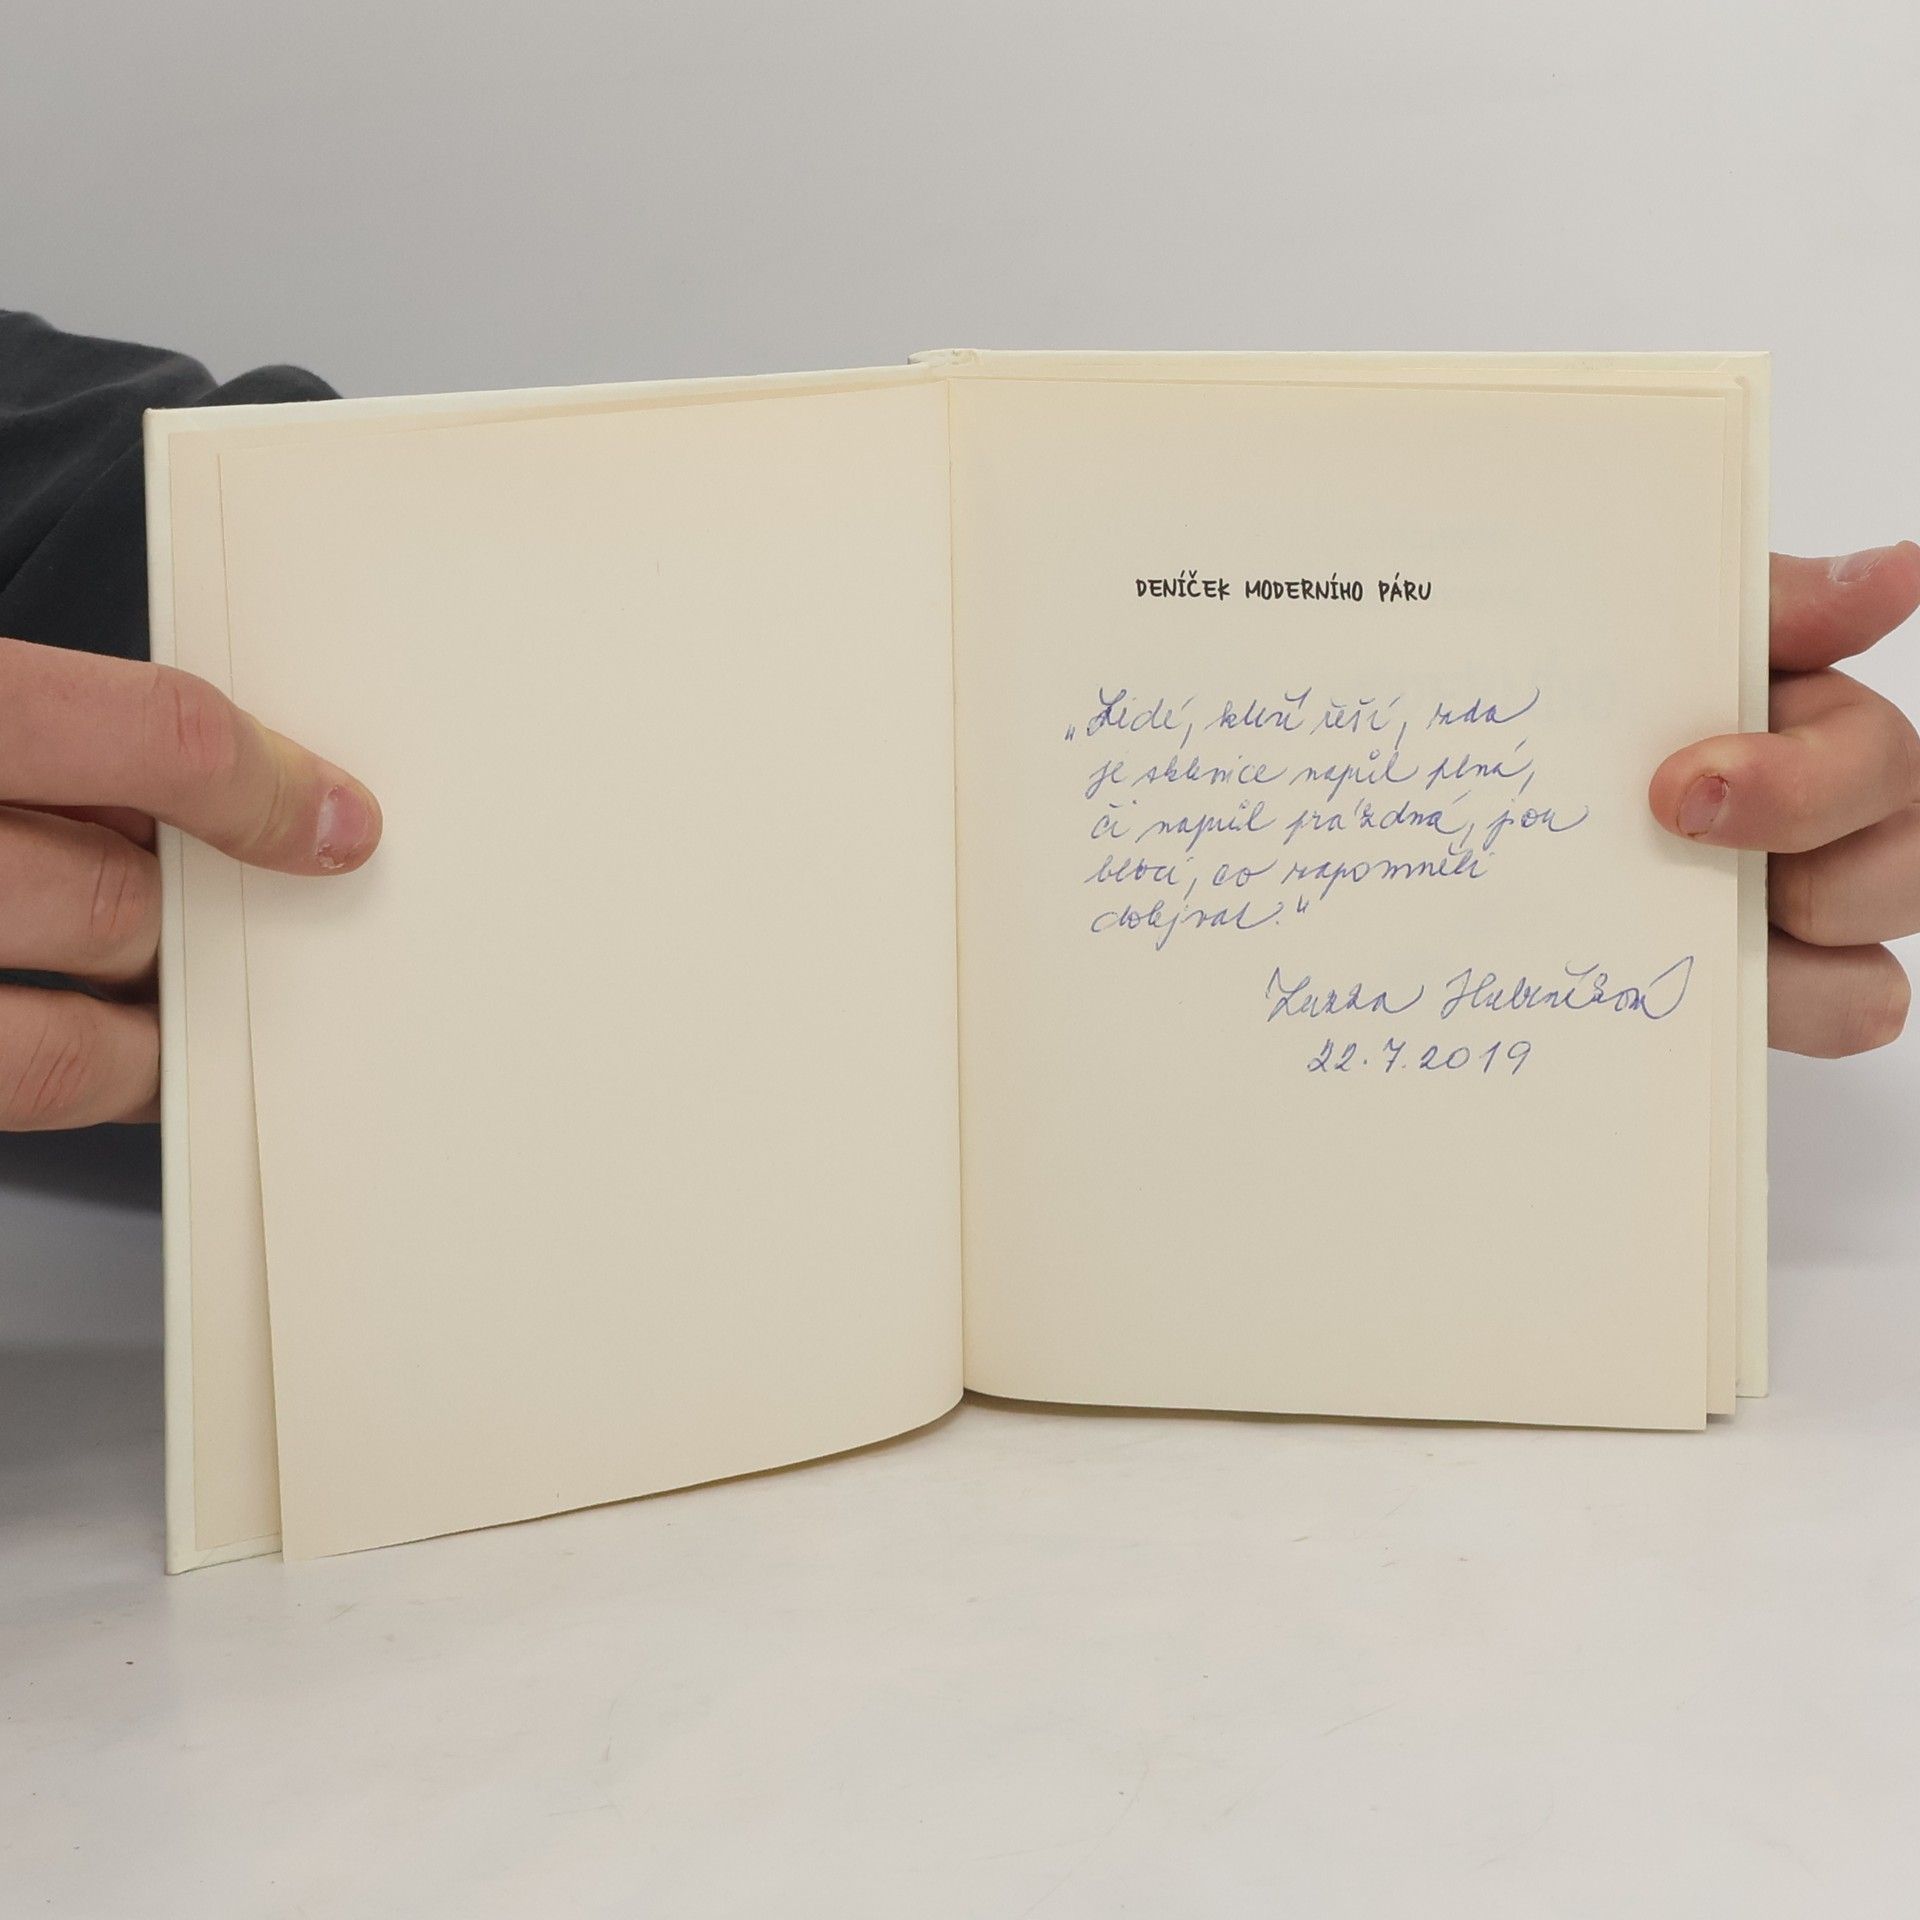 DENÍČEK MODERNÍHO PÁRU
„Lidé, kteří řeší, zda
je sklenice napůl plná,
či napůl prázdná, jsou
blbci, co zapomněli
dolejvat."
Zuzka Hubeňáková
22.7.2019